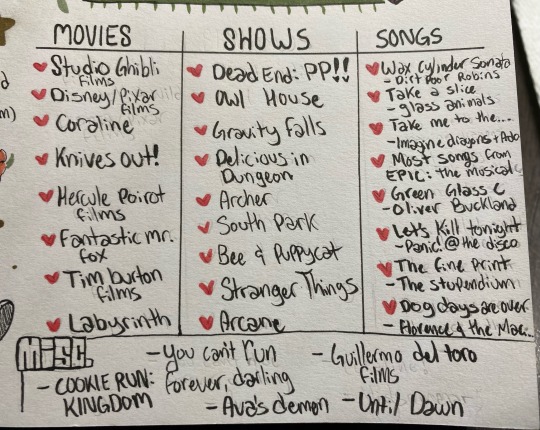 MOVIES
Studio Ghibli
films
Disney/Pixar
films
Coraline
Knives out!
Hercule Poirot
films
Fantastic mr.
fox
Tim burton
films
Labyrinth
SHOWS
Dead End: PP!!
Owl House
Gravity Falls
Delicious in
Dungeon
Archer
South Park
Bee & Puppycat
Stranger Things
Arcane
SONGS
Wax Cylinder Sonata
- Dirt Poor Robins
Take a slice
- glass animals
Take me to the....
- Imagine dragons + Ado
Most songs from
EPIC: the musical
Green Glass
- Oliver Buckland
Let's Kill tonight
- Panic! @ the disco
The fine Print
- The Stupendium
Dog days are over
- Florence & the Mac...
Misc.
- You can't run
forever, darling
- Guillermo del toro
films
- COOKIE RUN:
KINGDOM
- Ava's demon
- Until Dawn